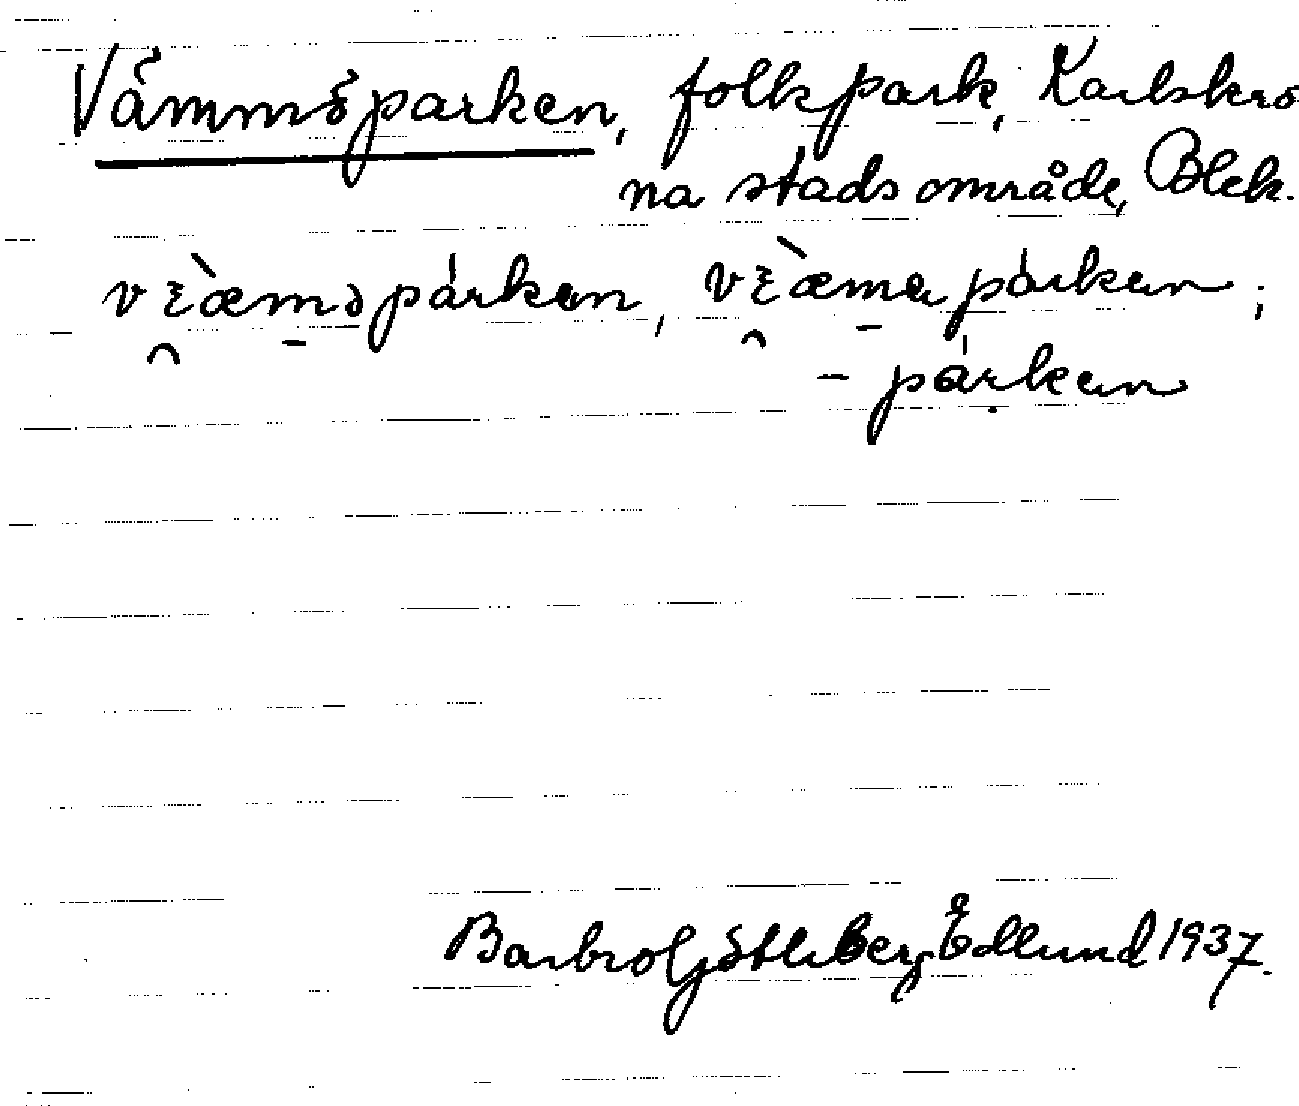 Vämmöparken, folkpark, Karlskro
na stadsområde, Blek.
vɛ̀æmöpárken, vɛ̀æmapárken;
- párken
Barbro Götleberg Edlund 1937.